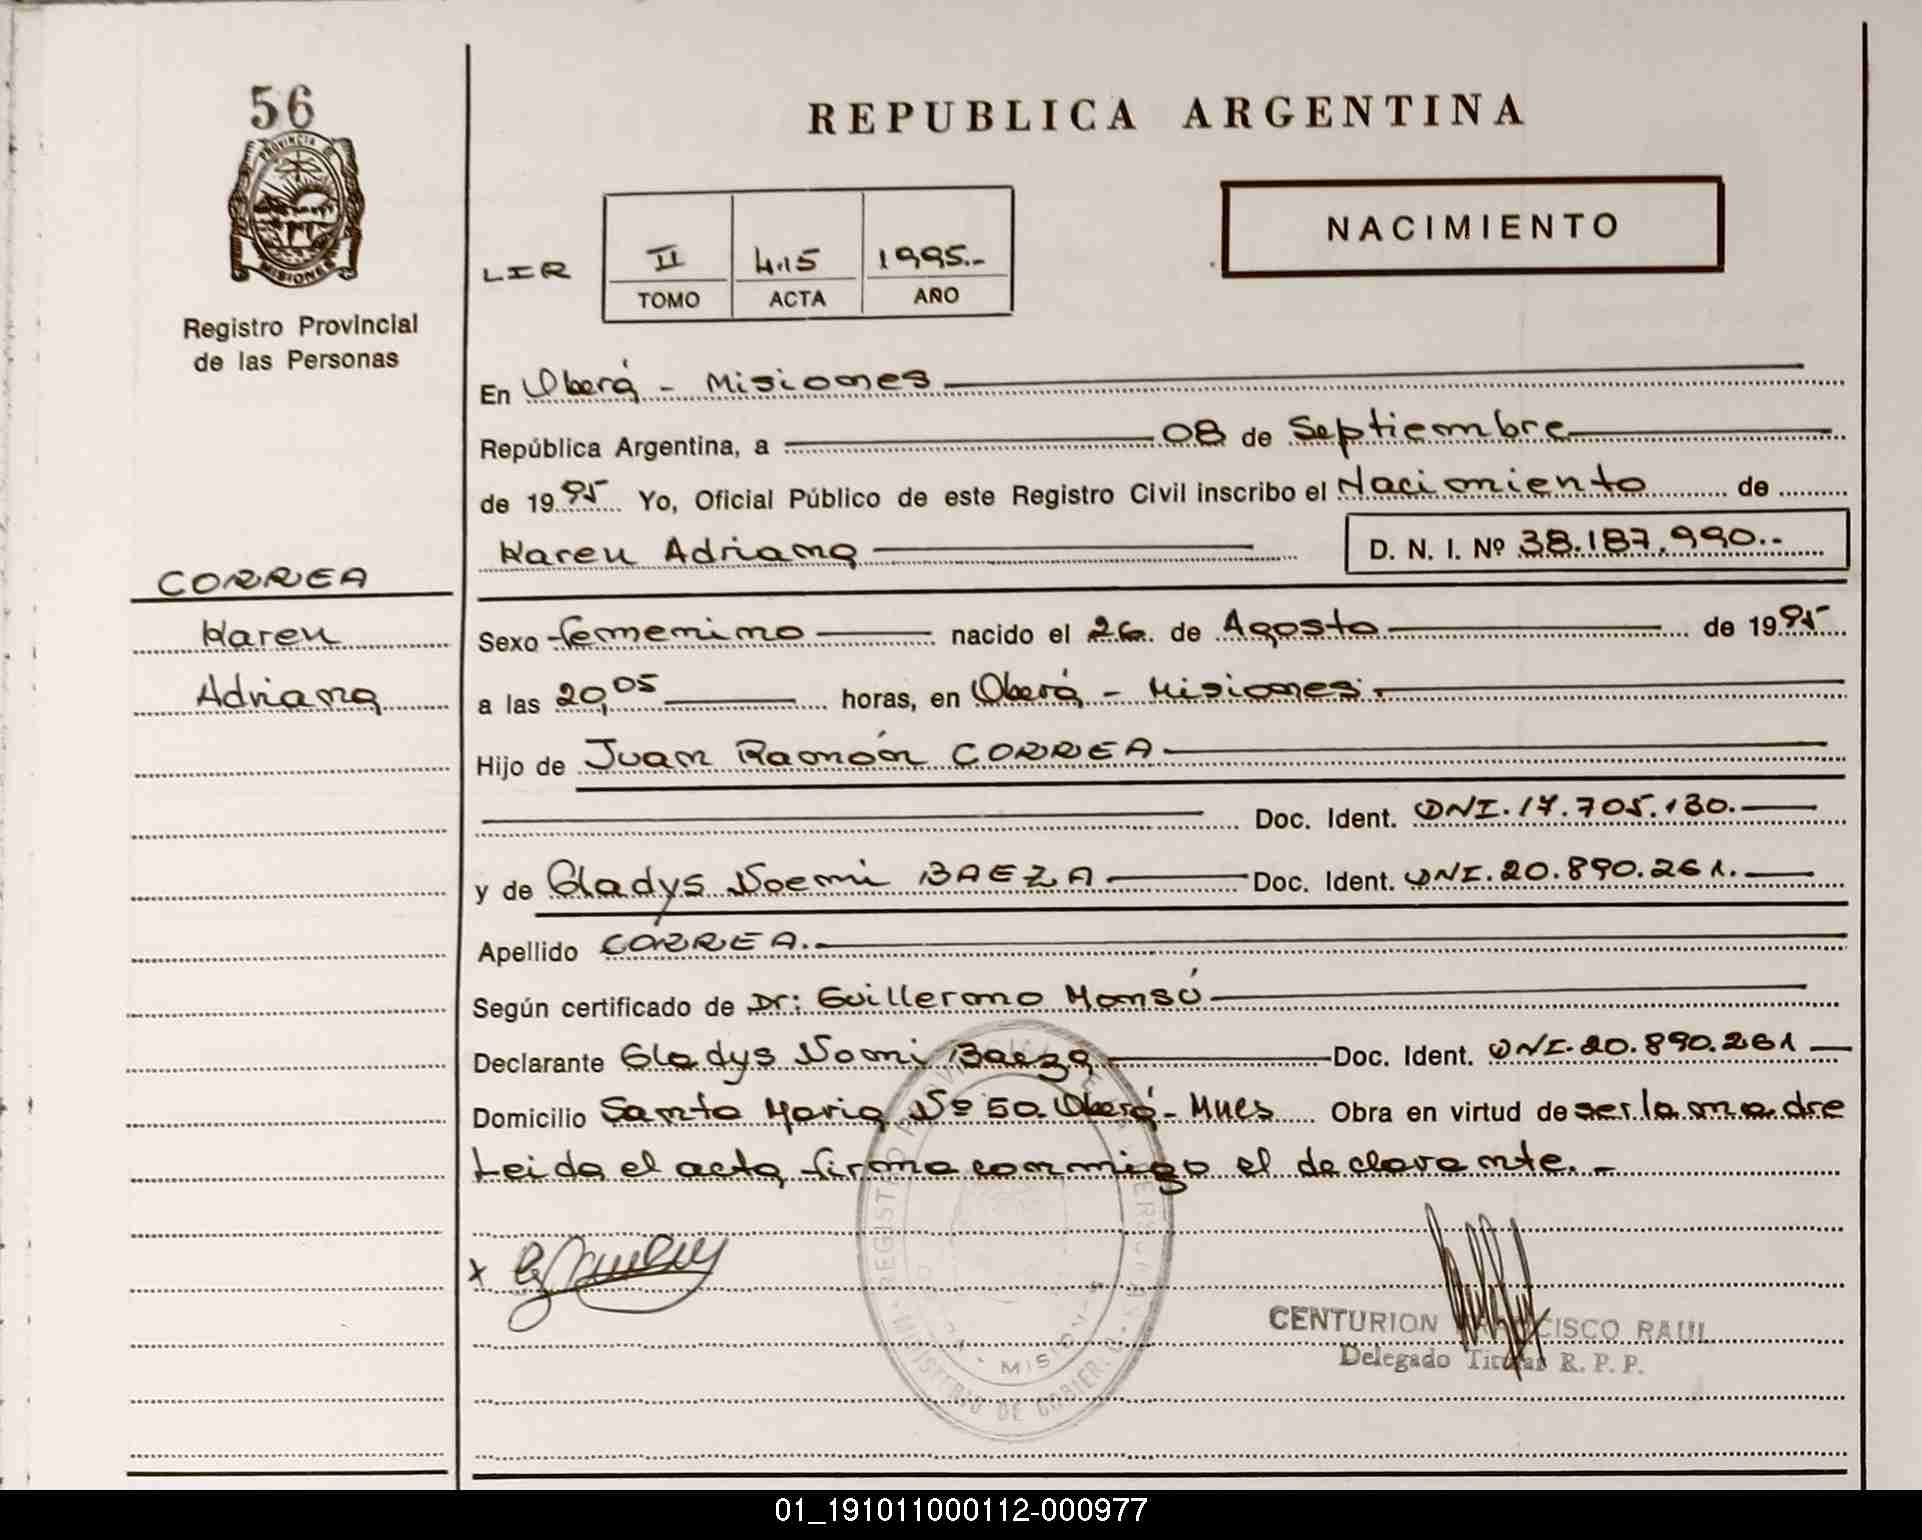 56
PROVINCIA DE
MISIONES
Registro Provincial
de las Personas
REPUBLICA ARGENTINA
NACIMIENTO
LIR II 415 1995.-
TOMO ACTA AÑO
En Oberá - Misiones
República Argentina, a 08 de Septiembre
de 1995 Yo, Oficial Público de este Registro Civil inscribo el Nacimiento de
Karen Adriana D. N. I. Nº 38.187.990.-
CORREA
Karen
Adriana
Sexo femenino nacido el 26 de Agosto de 1995
a las 20,05 horas, en Oberá - Misiones.
Hijo de Juan Ramón CORREA
Doc. Ident. DNI.17.705.130.
y de Gladys Noemi BAEZA Doc. Ident. DNI.20.890.261.
Apellido CORREA.
Según certificado de Dr: Guillermo Monsú
Declarante Gladys Nomi Baeza Doc. Ident. DNI.20.890.261
Domicilio Santa Maria Nº 50 Oberá - Mnes Obra en virtud de ser la madre
Leida el acta firma conmigo el declarante.-
x
REGISTRO PROVINCIAL DE LAS PERSONAS
MINISTERIO DE GOBIERNO
MISIONES
CENTURION FRANCISCO RAUL
Delegado Titular R. P. P.
01_191011000112-000977